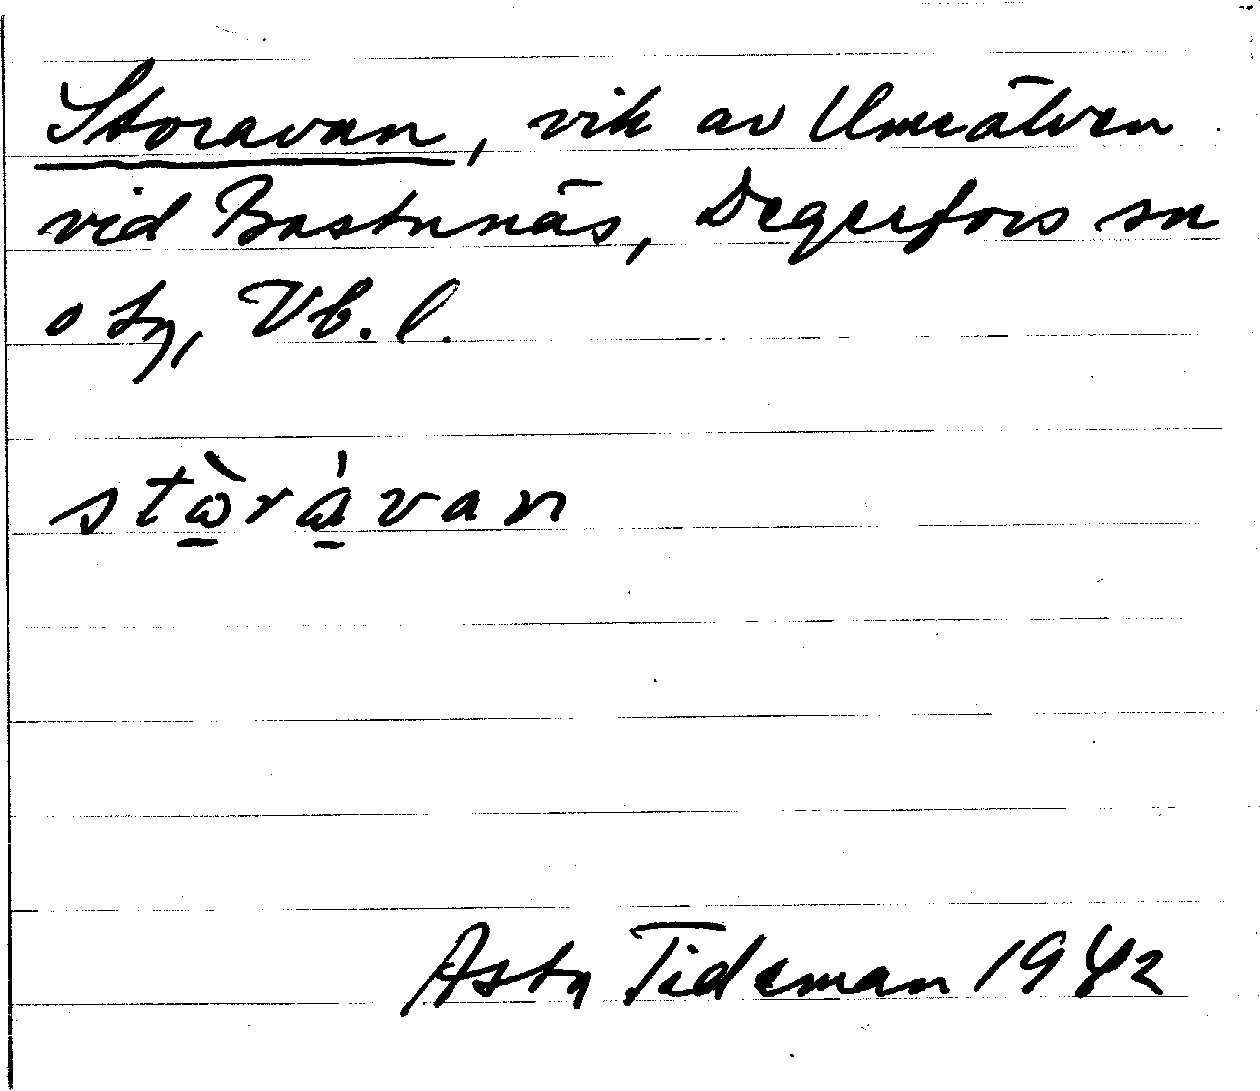 Storavan, vik av Umeälven
vid Bastunäs, Degerfors sn
o tg, Vb. l.
stὼ̱rά̱van
Asta Tideman 1942